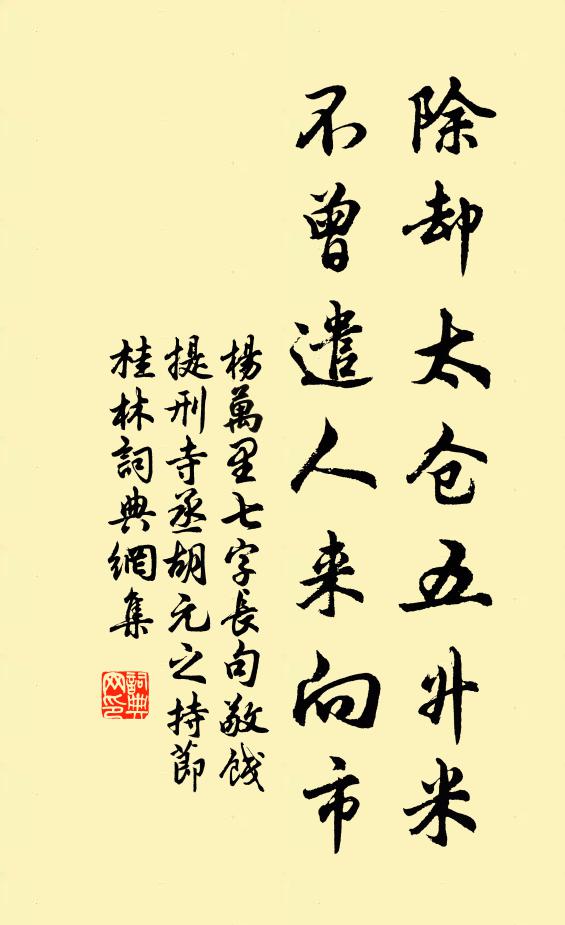 除却太仓五升米
不曾遣人来向市
楊萬里七字長句敬餞
提刑寺丞胡元之持節
桂林詞典網集
詞典网印